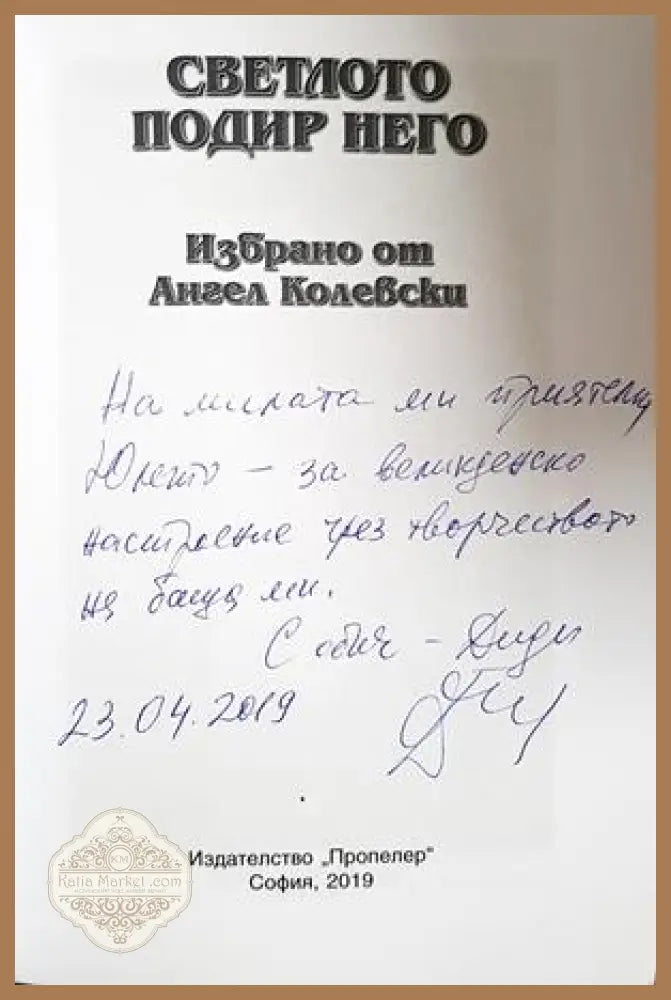 СВЕТЛОТО
ПОДИР НЕГО
Избрано от
Ангел Колевски
На милата ми приятелка
– за великденско
настроение чрез творчеството
на баща ми.
С обич – Диди
23.04.2019
Издателство „Пропелер“
София, 2019
KM
Katia Market .com